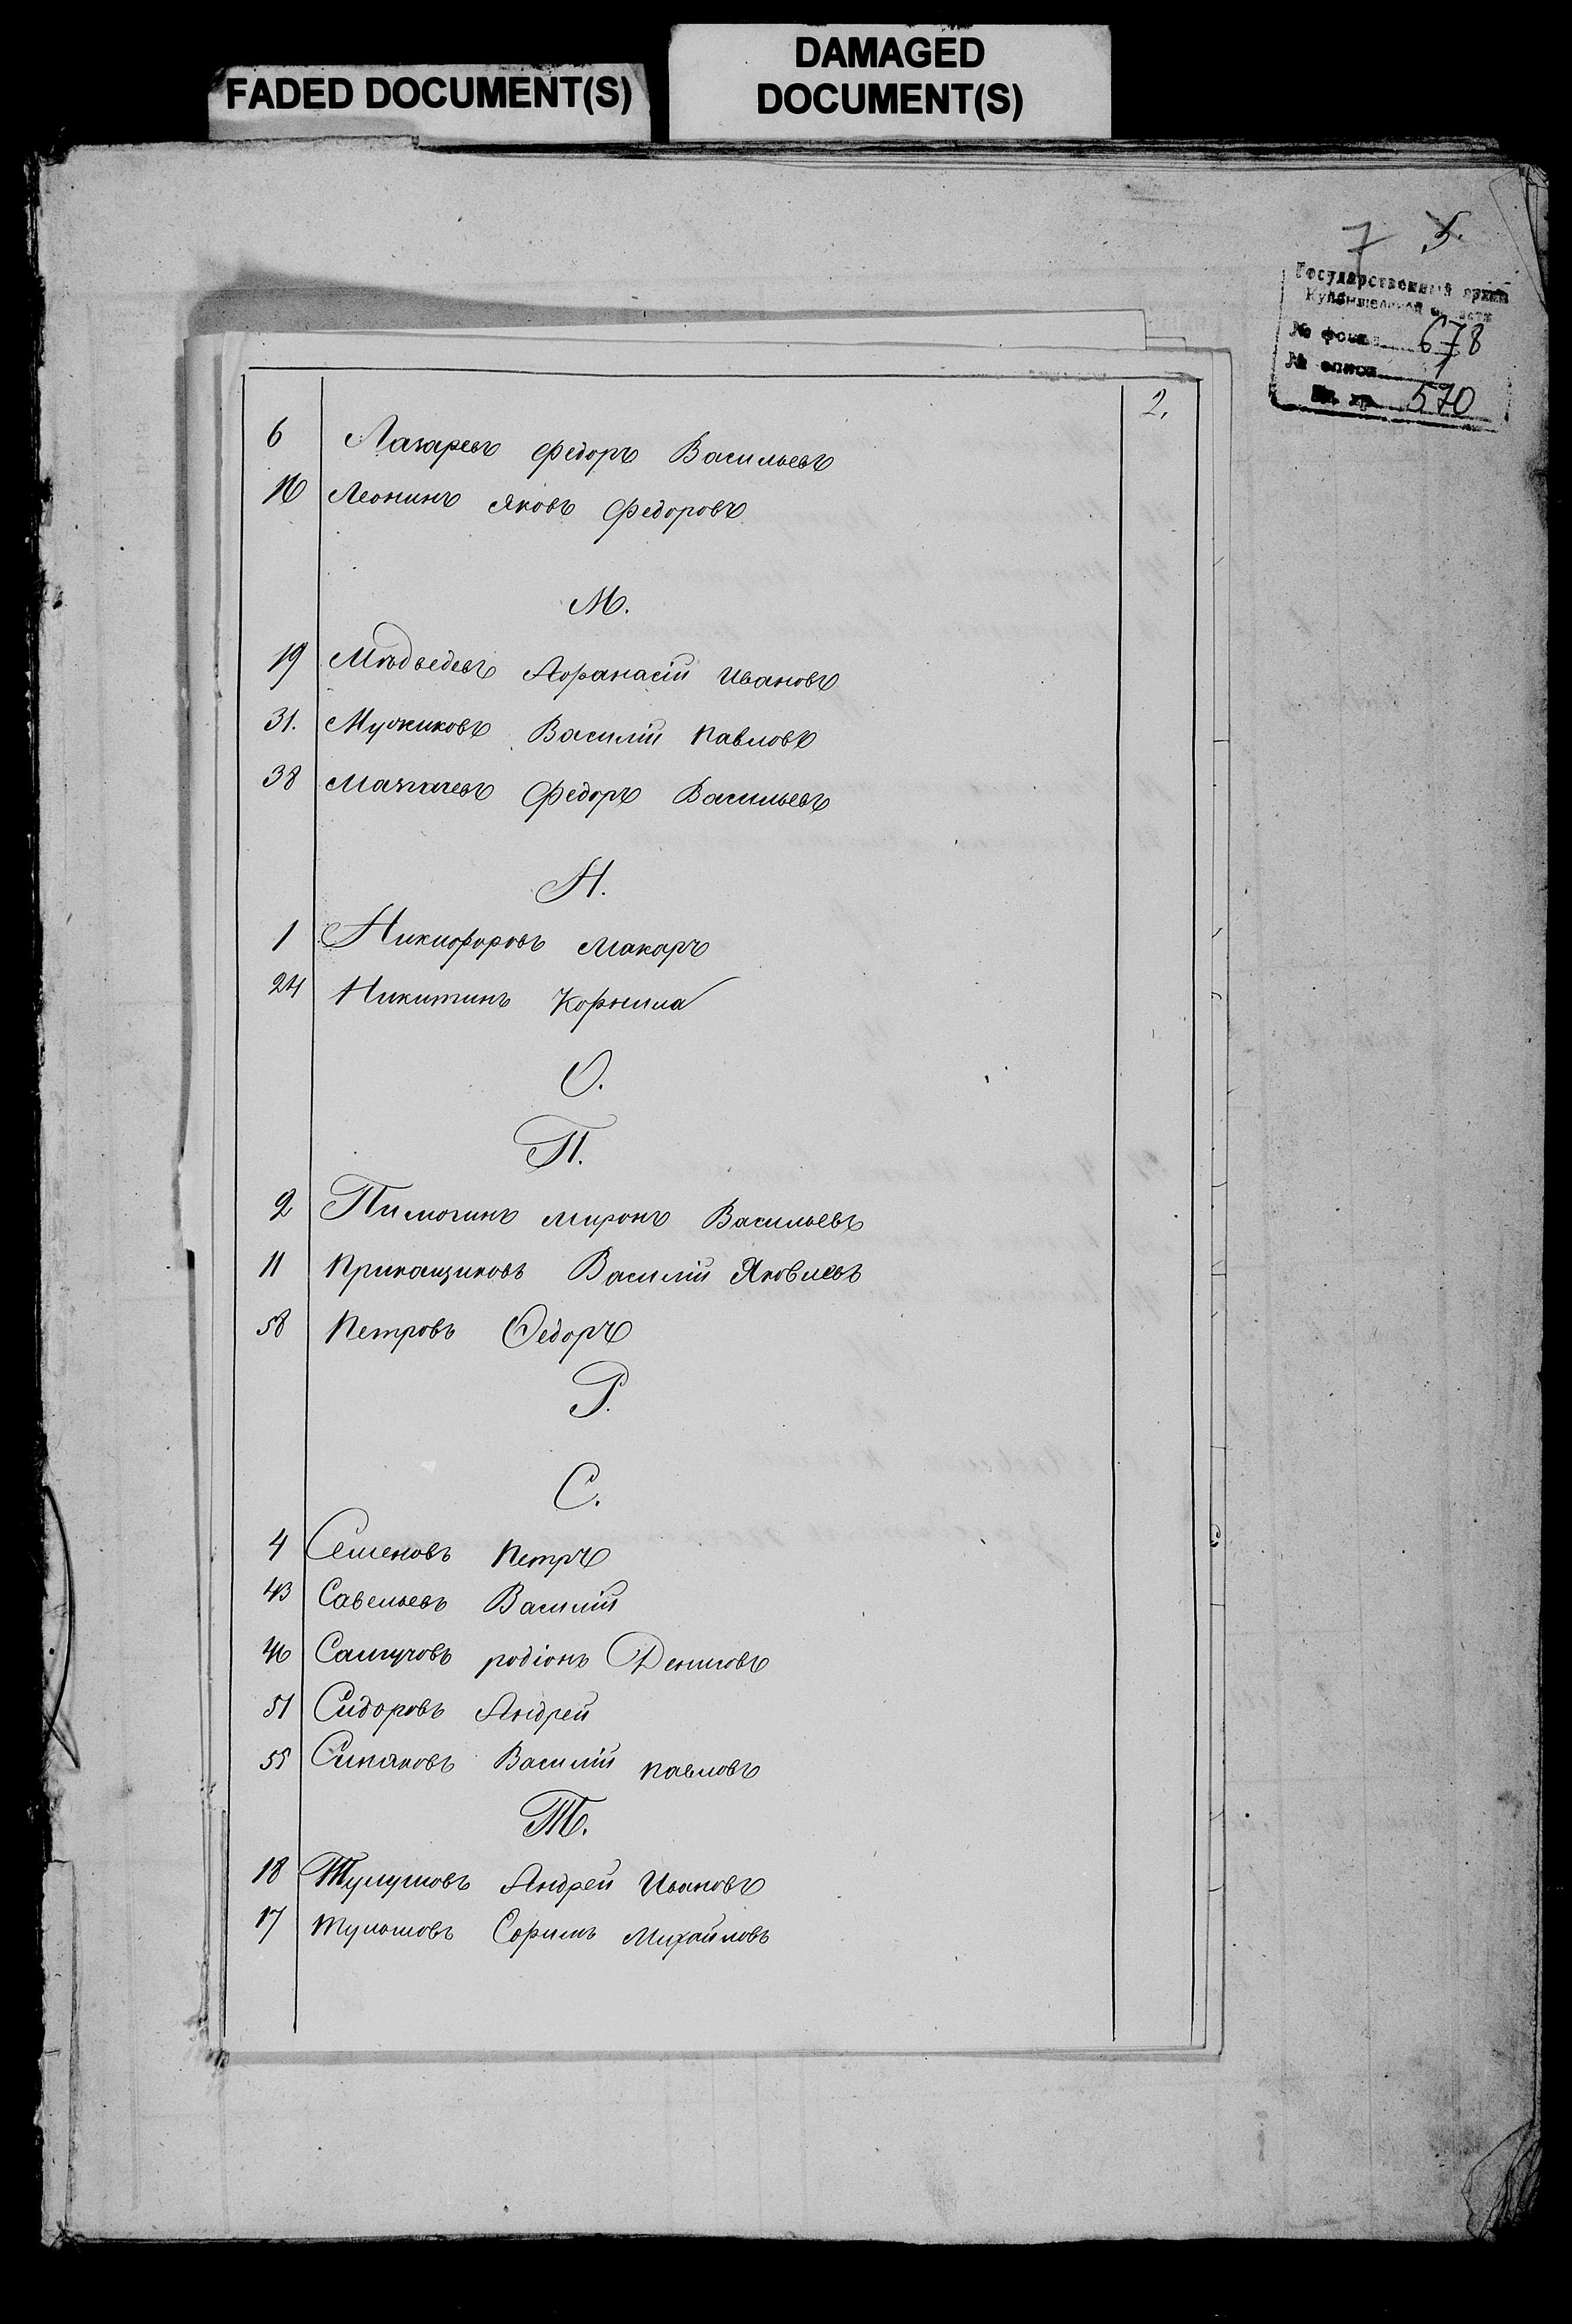 FADED DOCUMENT(S)
DAMAGED
DOCUMENT(S)
7 5.
Государственный архив
Куйбышевской области
№ фонда 678
№ описи 1
Ед. хр. 570
2.
6 Лазаревъ Федоръ Васильевъ
16 Леонинъ Яковъ Федоровъ
М.
19 Мѣдведевъ Афанасій Ивановъ
31. Мужиковъ Василій Павловъ
38 Федоръ Васильевъ
Н.
1 Никифоровъ Макаръ
24 Никитинъ Корнила
О.
П.
2 Пилюгинъ Миронъ Васильевъ
11 Прикащиковъ Василій Яковлевъ
58 Петровъ Федоръ
Р.
С.
4 Семеновъ Петръ
43 Савельевъ Василій
46 родіонъ Денисовъ
51 Сидоровъ Андрей
55 Синяковъ Василій Павловъ
Т.
18 Тулуповъ Андрей Ивановъ
17 Михайловъ